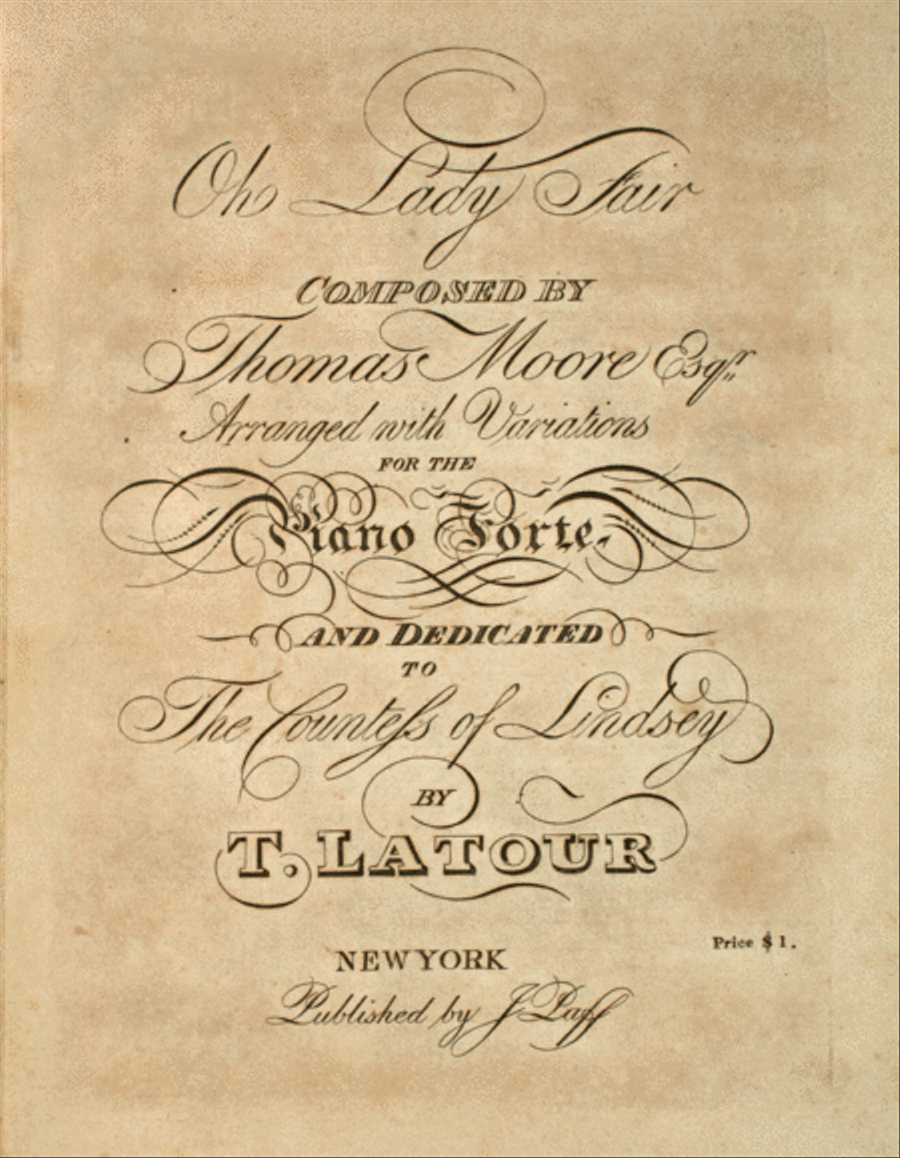 Oh Lady Fair
COMPOSED BY
Thomas Moore Esqr.
Arranged with Variations
FOR THE
Piano Forte.
AND DEDICATED
TO
The Counteſs of Lindsey
BY
T. LATOUR
Price $ 1.
NEW YORK
Published by J. Paff